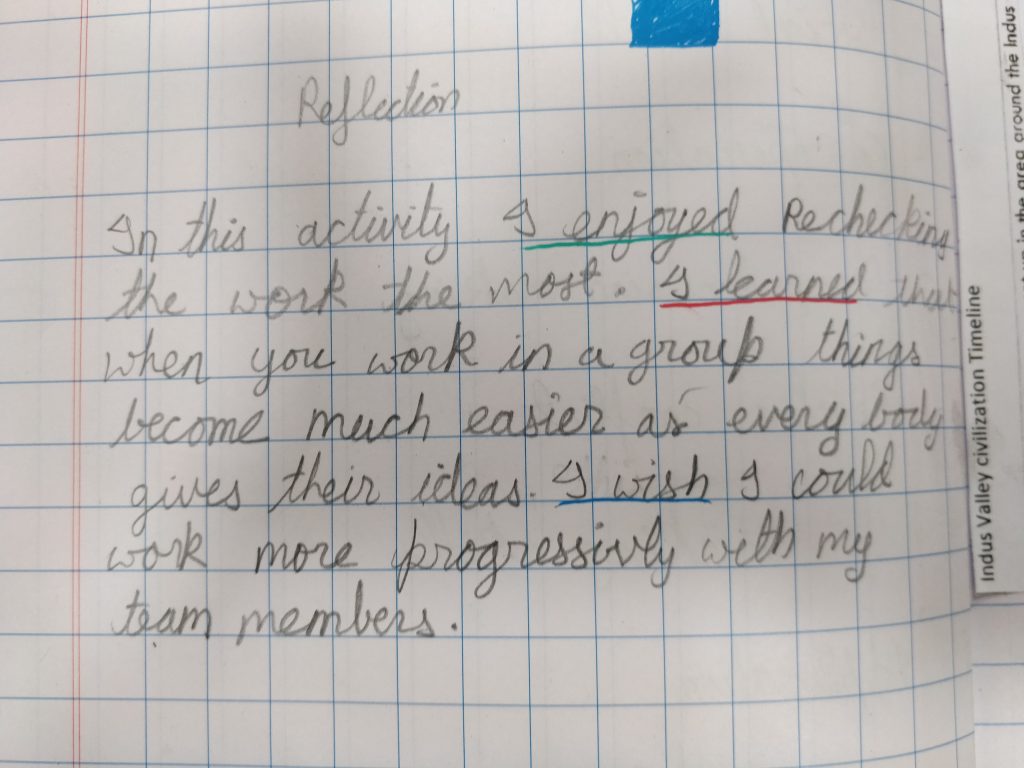 Reflection
In this activity I enjoyed Rechecking
the work the most. I learned that
when you work in a group things
become much easier as every body
gives their ideas. I wish I could
work more progressivly with my
team members.
Indus Valley civilization Timeline
in the area around the Indus